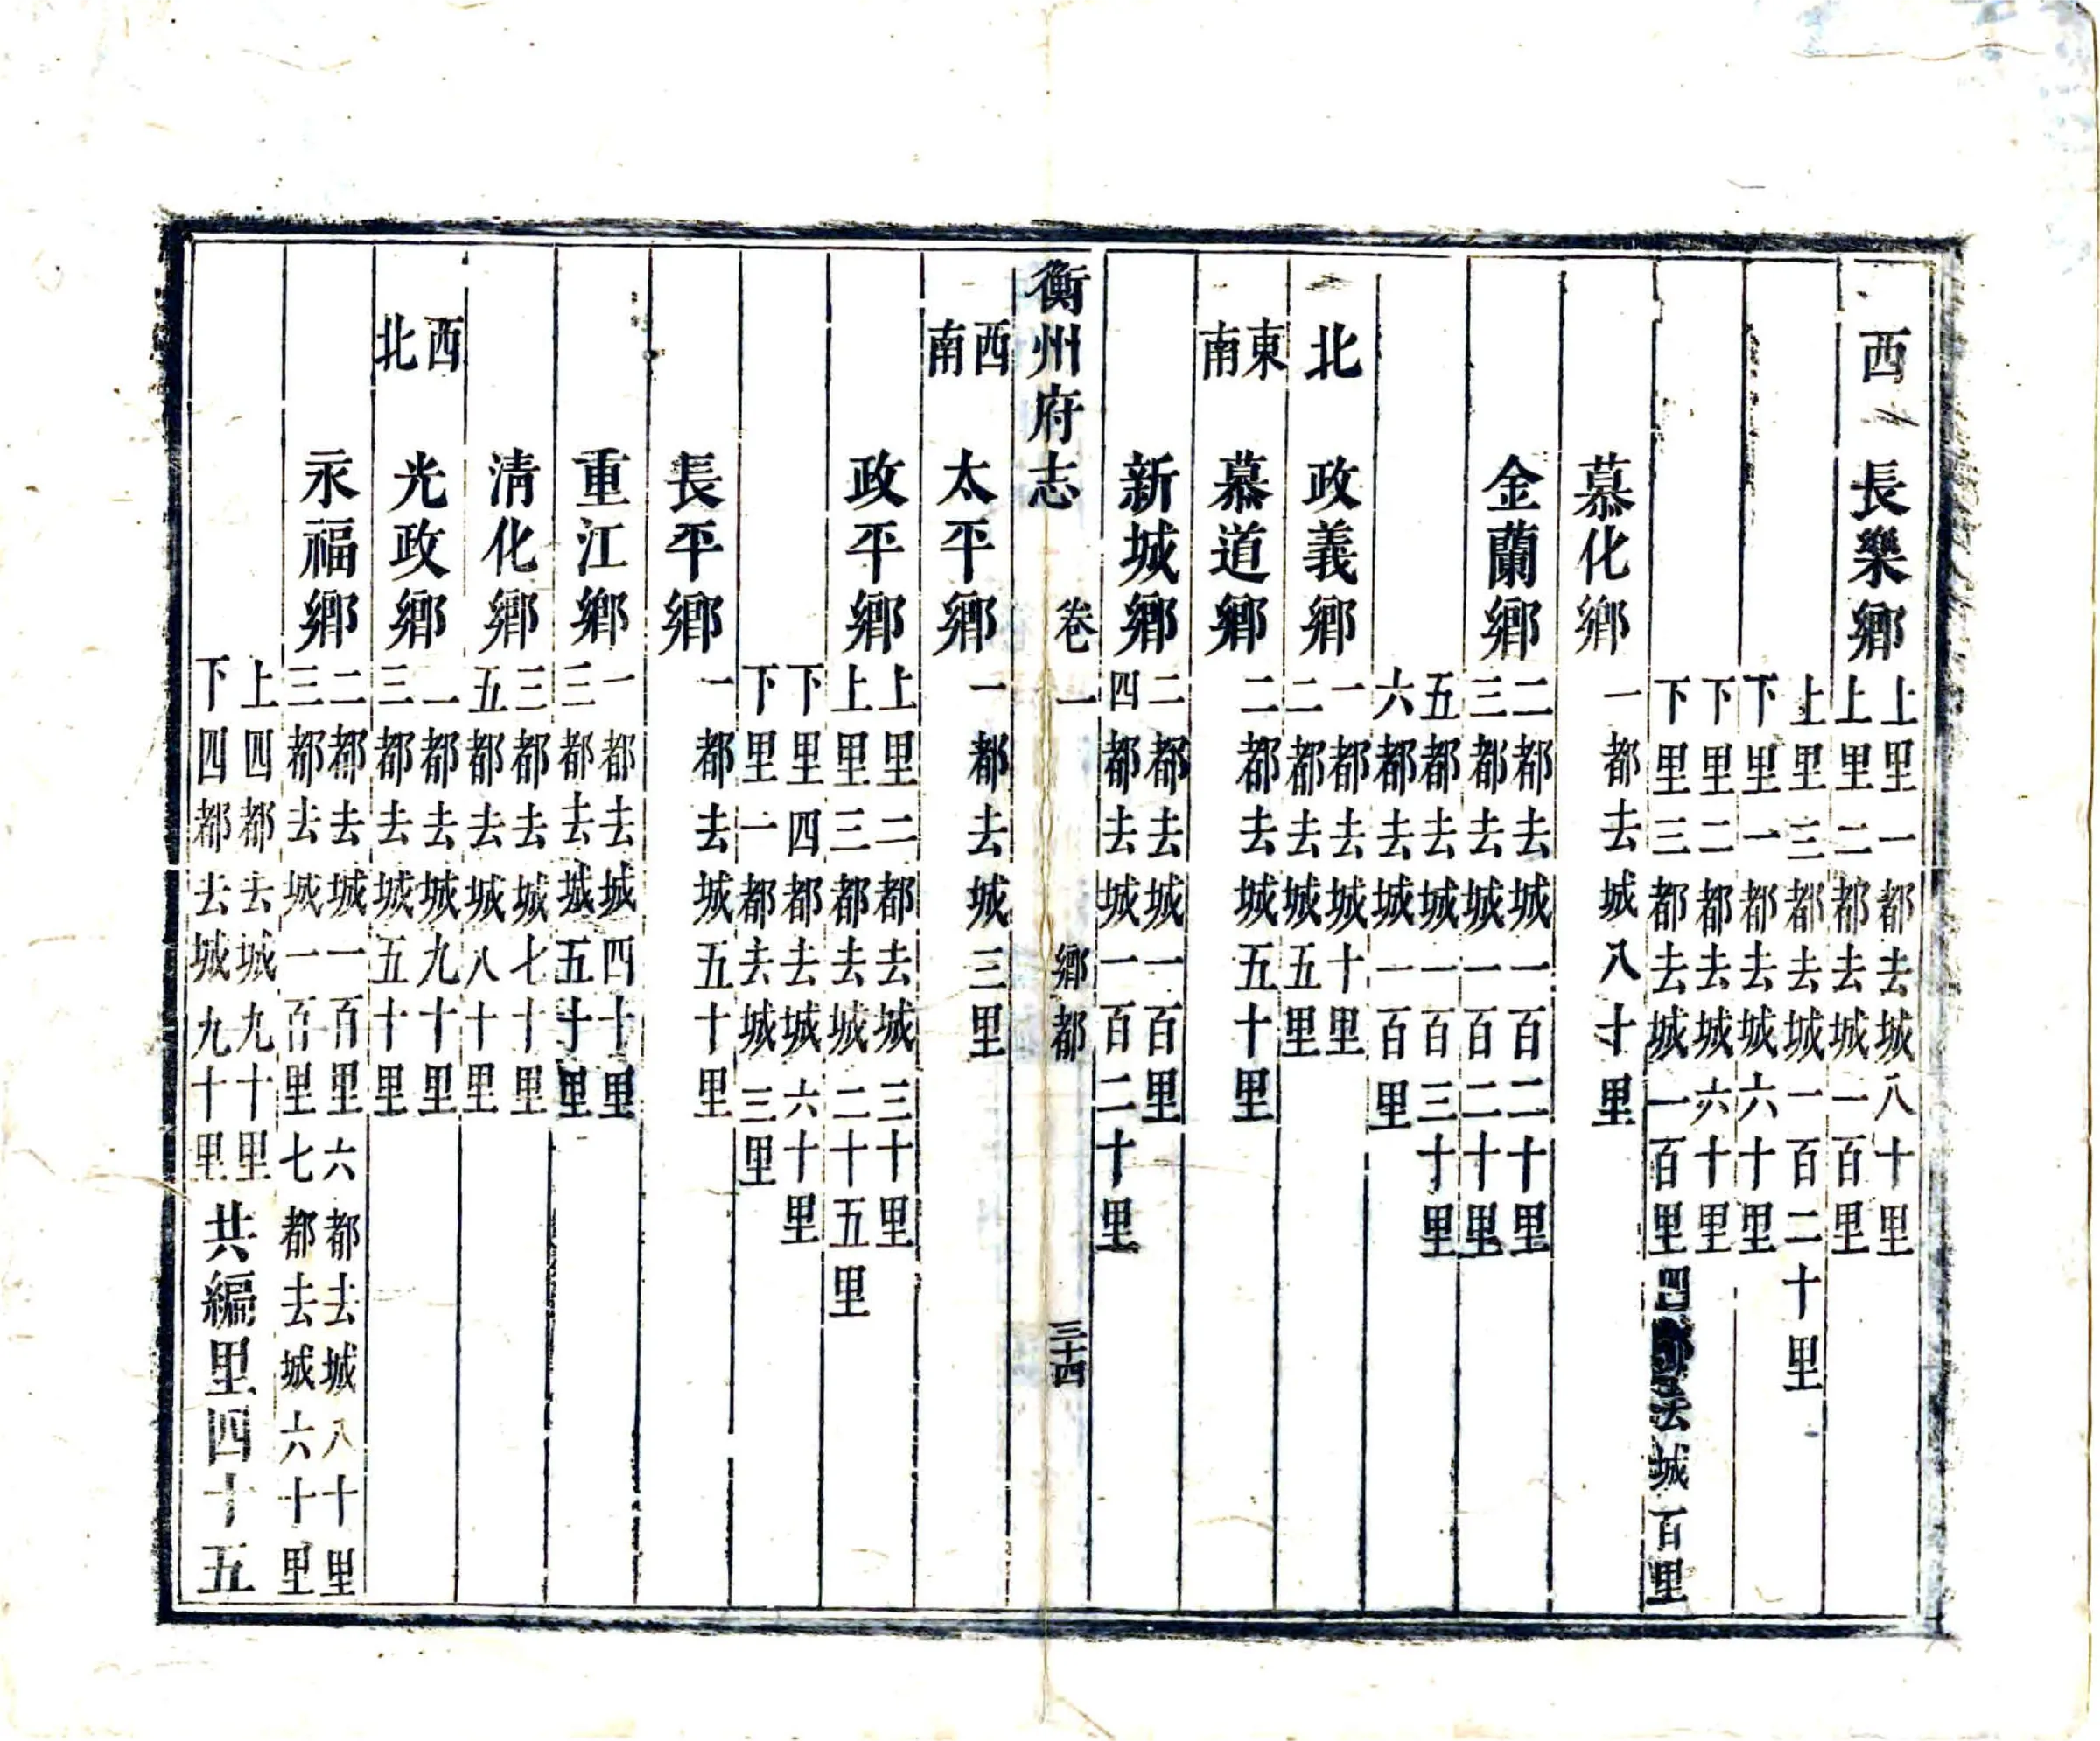 西 長樂鄉 上里一都去城八十里
上里二都去城一百里
上里三都去城一百二十里
下里一都去城六十里
下里二都去城六十里
下里三都去城一百里 四都去城百里
慕化鄉 一都去城八十里
金蘭鄉 二都去城一百二十里
三都去城一百二十里
五都去城一百三十里
六都去城一百里
北 政義鄉 一都去城十里
二都去城五里
東南 慕道鄉 二都去城五十里
新城鄉 二都去城一百里
四都去城一百二十里
衡州府志 卷一 鄉都 三十四
西南 太平鄉 一都去城三里
政平鄉 上里二都去城三十里
上里三都去城二十五里
下里四都去城六十里
下里一都去城三里
長平鄉 一都去城五十里
重江鄉 一都去城四十里
三都去城五十里
清化鄉 三都去城七十里
五都去城八十里
西北 光政鄉 一都去城九十里
三都去城五十里
永福鄉 二都去城一百里六都去城八十里
三都去城一百里七都去城六十里
上四都去城九十里
下四都去城九十里
共編里四十五